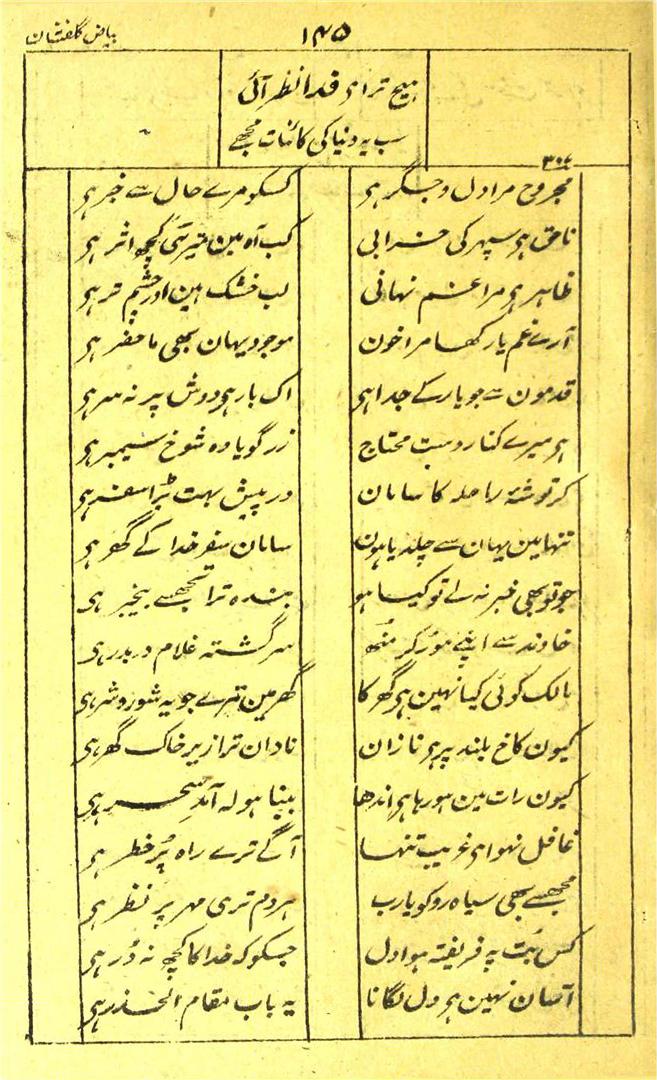 بیاض گلفشان
۱۴۵
ہیچ تر اے فدا نظر آئی
سب یہ دنیا کی کائنات مجھے
۳۰۷
مجروح مرا دل و جگر ہی کسکو مرے حال سے خبر ہی
ناحق ہو سپہر کی خرابی کب آہ مین تیری کچھ اثر ہی
ظاہر ہو مرا غم نہانی لب خشک ہین اور چشم تر ہی
آرے غم یار کھا مرا خون موجود یہان بھی ماحضر ہی
قدمون سے جو یار کے جدا ہی اک بار ہی دوش پر نہ سر ہی
ہو میرے کنار دست محتاج زر گویا وہ شوخ سیمبر ہی
کر توشۂ راحلہ کا سامان درپیش بہت بڑا سفر ہی
تنہا مین یہان سے چلدیا ہون سامان سفر خدا کے گھر ہی
جو تو بھی خبر نہ لے تو کیا ہو بندہ ترا تجھسے بیخبر ہی
خاوند سے اپنے موڑ کر منھ سرگشتہ غلام دربدر ہی
مالک کوئی کیا نہین ہی گھر کا گھر مین تیرے جو یہ شور و شر ہی
کیون کاخ بلند پر ہی نازان نادان ترا زیر خاک گھر ہی
کیون رات مین ہو رہا ہی اندھا بینا ہو لہ آمد سحر ہی
غافل نہو اے غریب تنہا آگے ترے راہ پُر خطر ہی
مجھسے بھی سیاہ رو کو یارب ہر دم تری مہر پر نظر ہی
کس بُت پہ فریفتہ ہوا دل جسکو کہ خدا کا کچھ نہ ڈر ہی
آسان نہین ہی دل لگانا یہ باب مقام الحذر ہی